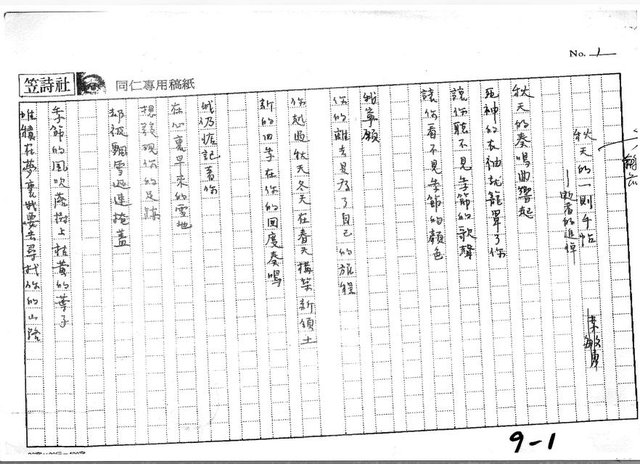 No. 1
笠詩社 同仁專用稿紙
秋天的一則手帖
——敗者的追悼
李敏勇
秋天的奏鳴曲響起
死神的衣袖就籠罩了你
讓你聽不見季節的歌聲
讓你看不見季節的顏色
我寧願
你的離去是為了自己的旅程
你越過秋天冬天在春天構築新領土
新的四季在你的國度奏鳴
我仍惦記著你
在心裏早來的雪地
想發現你的足跡
卻被飄雪迅速掩蓋
季節的風吹落樹上枯黃的葉子
堆積在夢裏我要去尋找你的山路
9-1